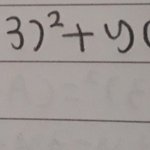 3)²+y(